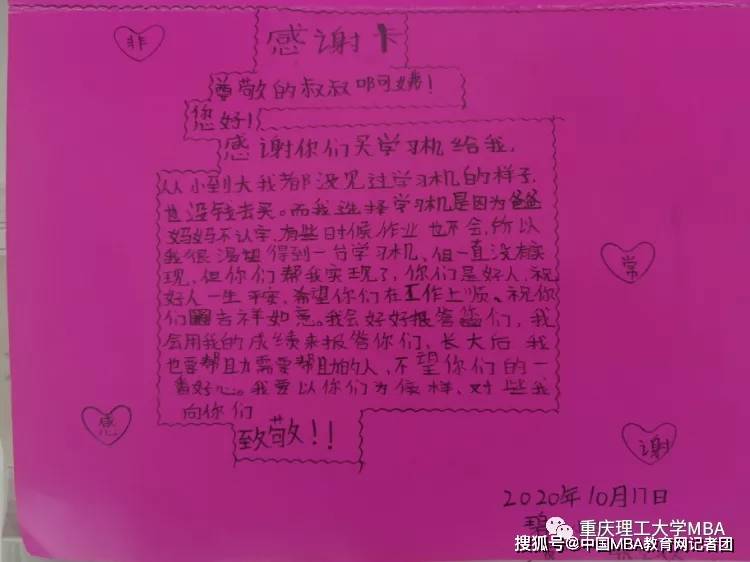 非
感谢卡
尊敬的叔叔啊姨!
您好!
感谢你们买学习机给我,
从小到大我都没见过学习机的样子,
也没钱去买。而我选择学习机是因为爸爸
妈妈不认字,有些时候作业也不会,所以
我很渴望得到一台学习机、但一直没有实
现,但你们帮我实现了,你们是好人,祝
好人一生平安,希望你们在工作上顺。祝你
们吉祥如意。我会好好报答您们,我
会用我的成绩来报答你们,长大后我
也要帮助需要帮助的人,不望你们的一
番好心。我要以你们为傍样,对此我
向你们
致敬!!
常
感
谢
2020年10月17日
重庆理工大学MBA
搜狐号@中国MBA教育网记者团